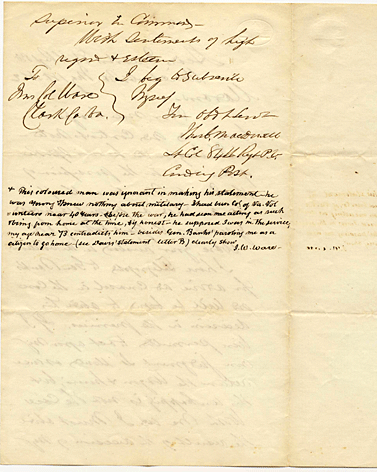 Superior in Command —
With Sentiments of high
regard & esteem
To } I beg to Subscribe
Jno. Col Ware } Myself
Clark Co. Va. } Your Obt Servt
Thos. C. Macdowell
Lt Col 84th Regt P.V.
Comdg Post.
This coloured man was ignorant in making his statement — he
was young & knew nothing about military. I had been Col. of Va. Vol
unteers near 40 years. Before the war, he had seen me acting as such
& being from home at the time, tho honest — he supposed I was in the service,
my age near 73 contradicts him — besides Gen. Banks' paroling me as a
citizen to go home — (see Davis' statement letter B) clearly show
J. W. Ware —